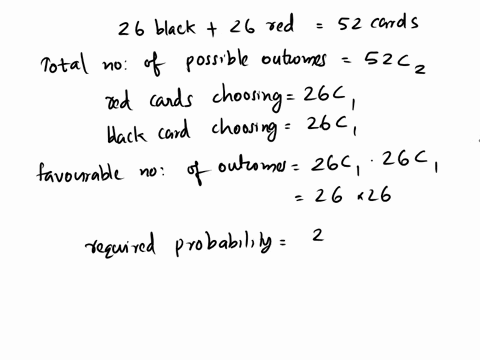 26 black + 26 red = 52 cards
Total no: of possible outcomes = 52C₂
red cards choosing = 26C₁
black card choosing = 26C₁
favourable no: of outcomes = 26C₁ · 26C₁
= 26 × 26
required probability = 2